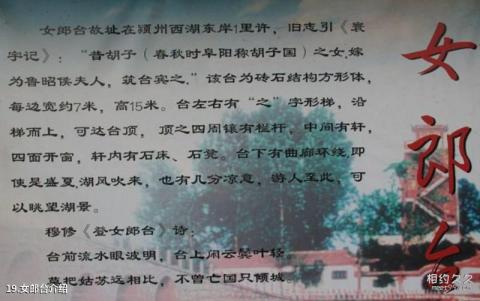 女郎台故址在颍州西湖东岸1里许，旧志引《寰
宇记》："昔胡子（春秋时阜阳称胡子国）之女，嫁
为鲁昭侯夫人，筑台宾之。"该台为砖石结构方形体，
每边宽约7米，高15米。台左右有"之"字形梯，沿
梯而上，可达台顶，顶之四周镶有栏杆，中间有轩，
四面开窗，轩内有石床、石凳。台下有曲廊环绕，即
使是盛夏，湖风吹来，也有几分凉意，游人至此，可
以眺望湖景。
穆修《登女郎台》诗：
台前流水眼波明，台上闲云鬓叶轻
莫把姑苏远相比，不曾亡国只倾城。
女郎台
19.女郎台介绍
相约久久